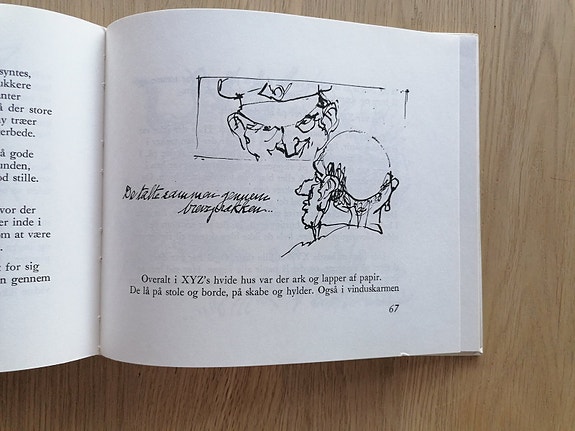 syntes,
ukkere
nter
å der store
ny træer
erbede.
å gode
unden,
od stille.
vor der
er inde i
om at være
t for sig
n gennem
De talte sammen gennem
brevsprækken...
Overalt i XYZ's hvide hus var der ark og lapper af papir.
De lå på stole og borde, på skabe og hylder. Også i vinduskarmen
67